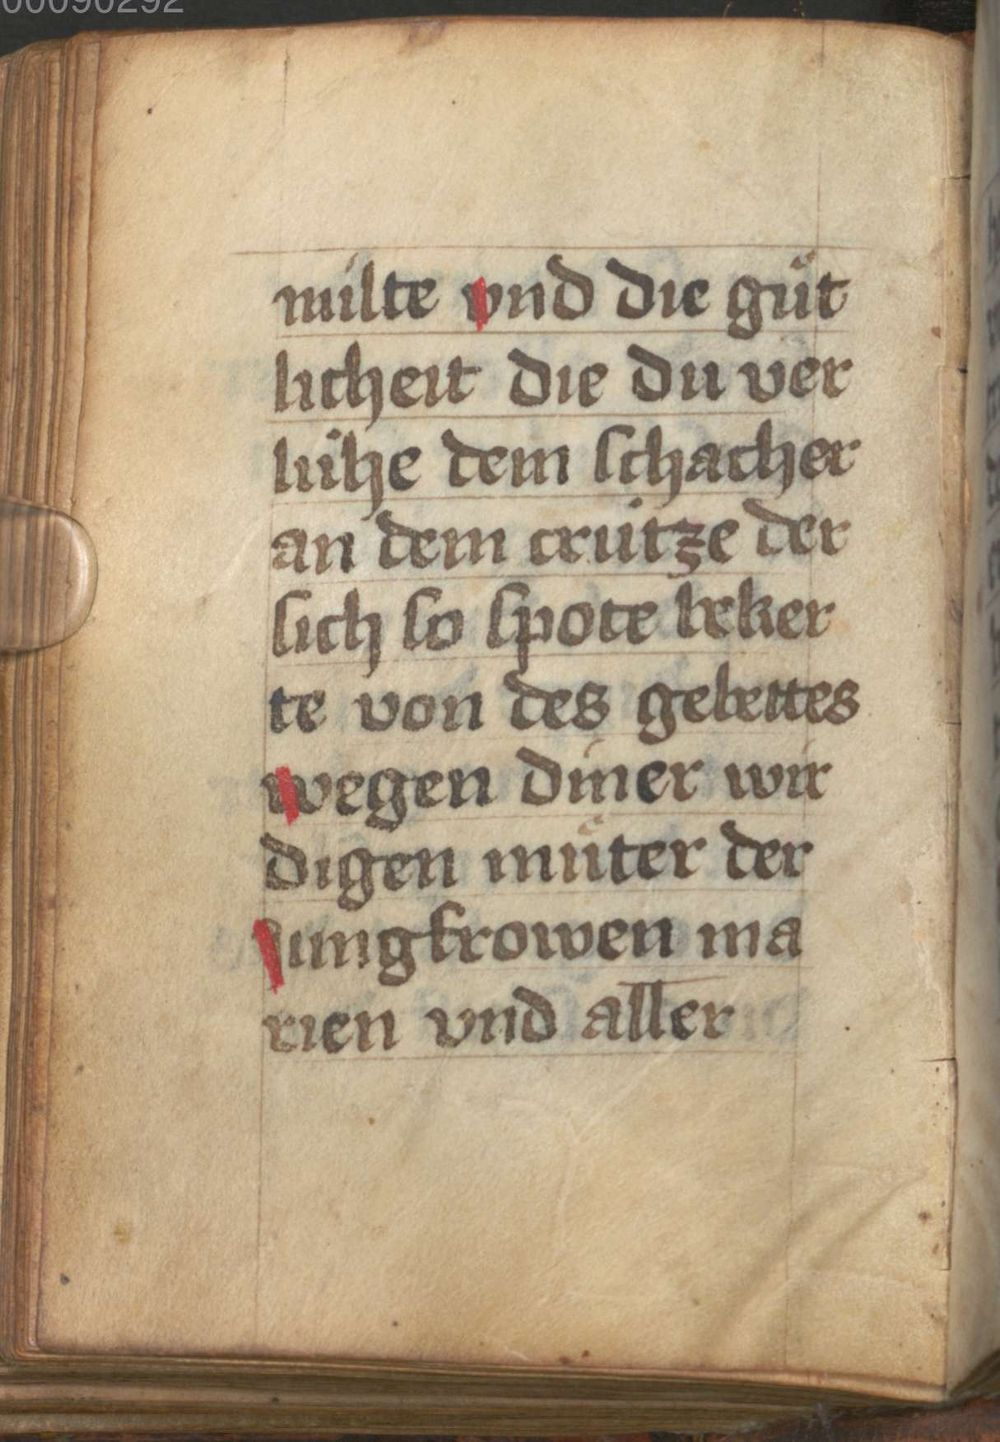 00090292
milte vnd die gůt
licheit die du ver
luhe dem schacher
an dem crutze der
sich so spote beker
te von des gebettes
wegen diner wir
digen můter der
Jungfrowen ma
rien vnd aller